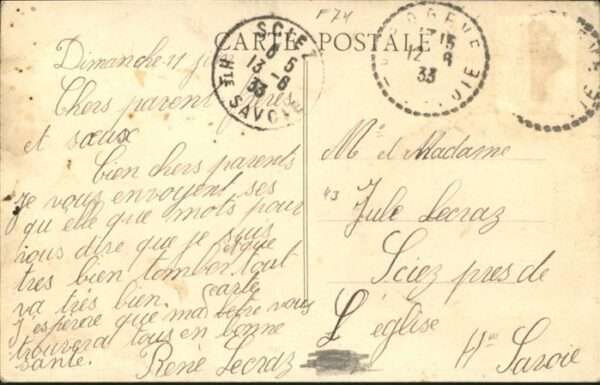 F 74
CARTE POSTALE
SCIEZ
6 5
13 -8
33
HTE SAVOIE
12 8
33
Dimanche 11
Chers parent frères
et sœux
bien chers parents
Je vous envoyent ses
qu elle que mots pour
vous dire que je suis
tres bien tomber et que tout
va très bien.
J'espere que ma carte lettre vous
trouvera tous en bonne
santé. René Lecraz
Mr et Madame
Jule Lecraz
Sciez pres de
L'église
Hte Savoie